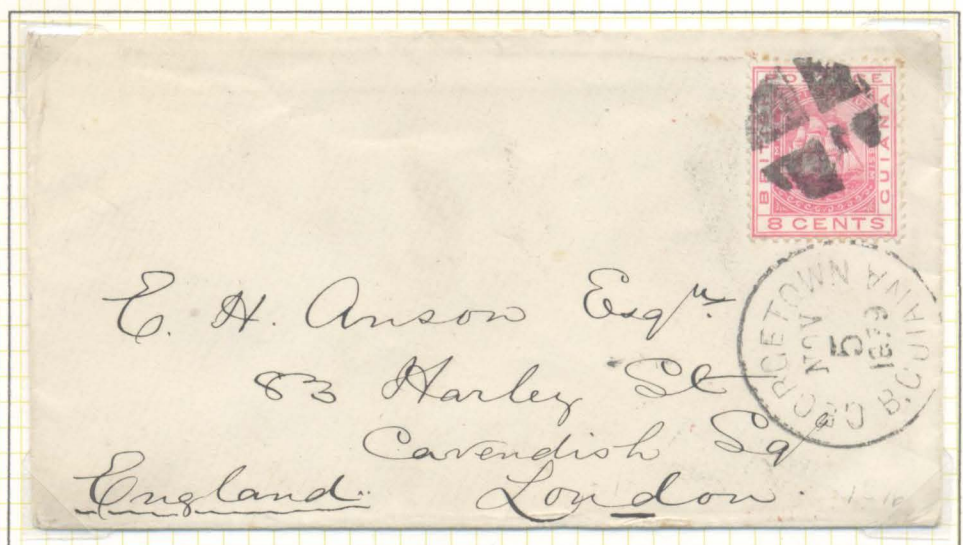 POSTAGE
BRIT GUIANA
8 CENTS
GEORGETOWN
NOV
5
1879
B. GUIANA
E. H. Anson Esqre.
83 Harley St
Cavendish Sq
England London.